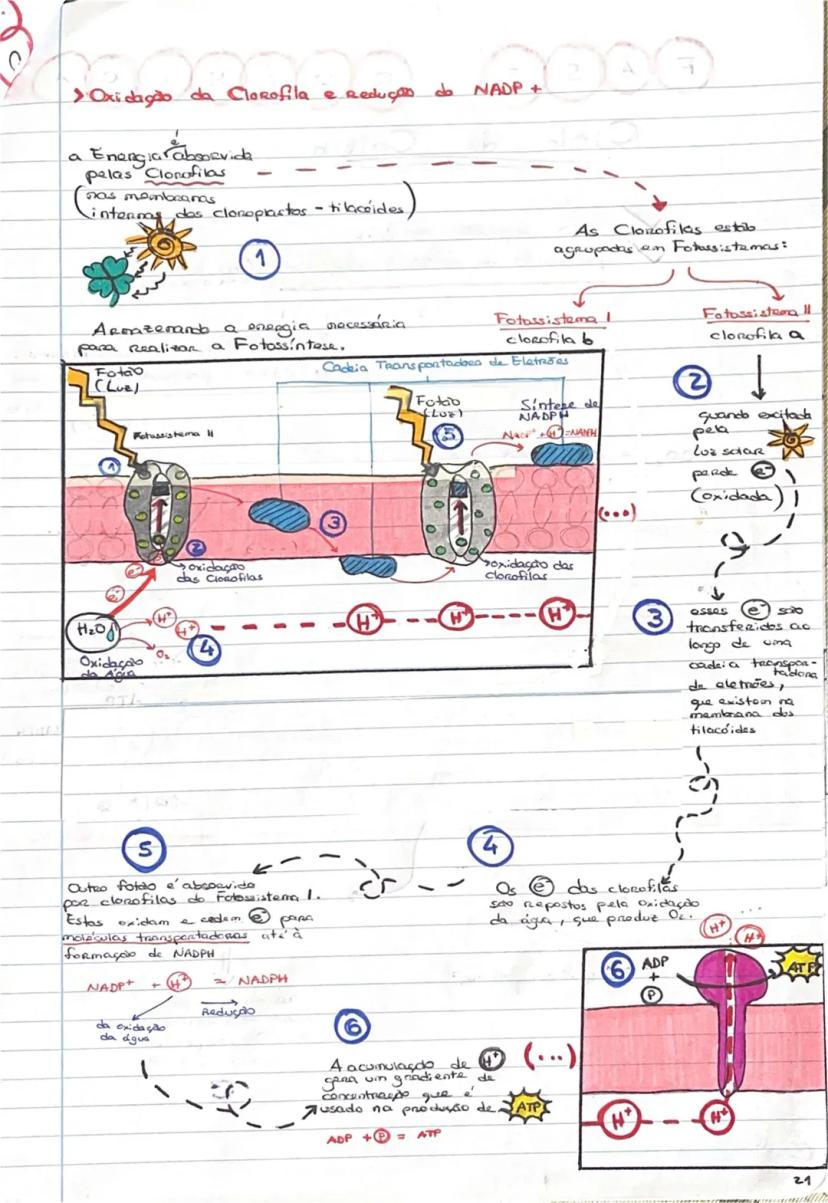 > Oxidação da Clorofila e Redução do NADP +
a Energia é absorvida
pelas Clorofilas
(nas membranas
internas dos cloroplastos - tilacóides)
1
As Clorofilas estão
agrupadas em Fotossistemas:
Armazenando a energia necessária
para realizar a Fotossíntese.
Fotossistema I
clorofila b
Fotossistema II
clorofila a
Cadeia Transportadora de Eletrões
Fotão
(Luz)
Fotossistema II
1
Fotão
(Luz)
5
Síntese de
NADPH
NADP+ + H+ = NADPH
3
2
oxidação
das Clorofilas
oxidação das
Clorofilas
(...)
e-
e-
H2O
H+
H+
O2
4
H+
H+
H+
Oxidação
da Água
2
quando excitada
pela
luz solar
perde e-
(oxidada)
3
esses e- são
transferidos ao
longo de uma
cadeia transpor-
tadora
de eletrões,
que existem na
membrana dos
tilacóides
4
Os e- das clorofilas
são repostos pela oxidação
da água, que produz O2.
5
Outro fotão é absorvido
por clorofilas do Fotossistema I.
Estas oxidam e cedem e- para
moléculas transportadoras até à
formação de NADPH
NADP+ + H+ = NADPH
da oxidação
da água
Redução
6
A acumulação de H+
gera um gradiente de
concentração que é
usado na produção de ATP
ADP + P = ATP
(...)
H+
H+
...
6
ADP
+
P
ATP
H+
H+
21